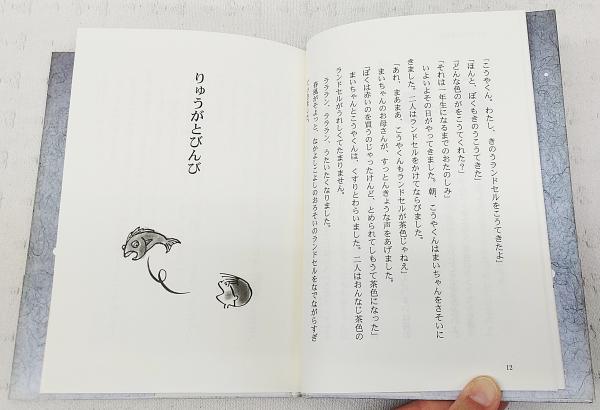 「こうやくん。わたし、きのうランドセルをこうてきたよ」
「ほんと、ぼくもきのうこうてきた」
「どんな色のがをこうてくれた?」
「それは一年生になるまでのおたのしみ」
いよいよその日がやってきました。朝、こうやくんはまいちゃんをさそいに
きました。二人はランドセルをかけてならびました。
「あれ、まあまあ、こうやくんもランドセルが茶色じゃねえ」
まいちゃんのお母さんが、すっとんきょうな声をあげました。
「ぼくは赤いのを買うのじゃったけんど、とめられてしもうて茶色になった」
まいちゃんとこうやくんは、くすりとわらいました。二人はおんなじ茶色の
ランドセルがうれしくてたまりません。
ラララン、ラララン、うたいたくなりました。
春風がそよっと、なかよしこよしのおそろいのランドセルをなでながらすぎ
12
りゅうがとびんび